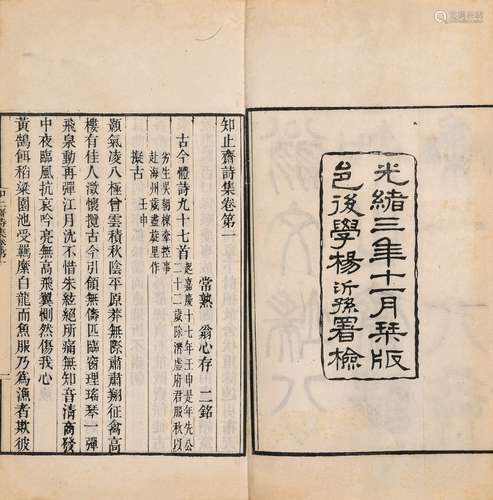 光緒三年十一月栞版
邑後學楊沂孫署檢
知止齋詩集卷第一
常熟 翁心存 二銘
古今體詩九十七首 起嘉慶十七年壬申是年先公
二十二歲除濟虛府君服秋以
生吳朝棟牽控事
赴海州歲盡旋里作
擬古 壬申
顥氣凌八極曾雲積秋陰平原莽無際肅肅翔征禽高
樓有佳人澂懷攬古今引領無儔匹臨窗理瑤琴一彈
飛泉動再彈江月沈不惜朱絃絕所痛無知音清商發
中夜臨風抗哀吟亮無高飛翼惻然傷我心
黃鵠餌稻粱園池受羈縻白龍而魚服乃為漁者欺彼